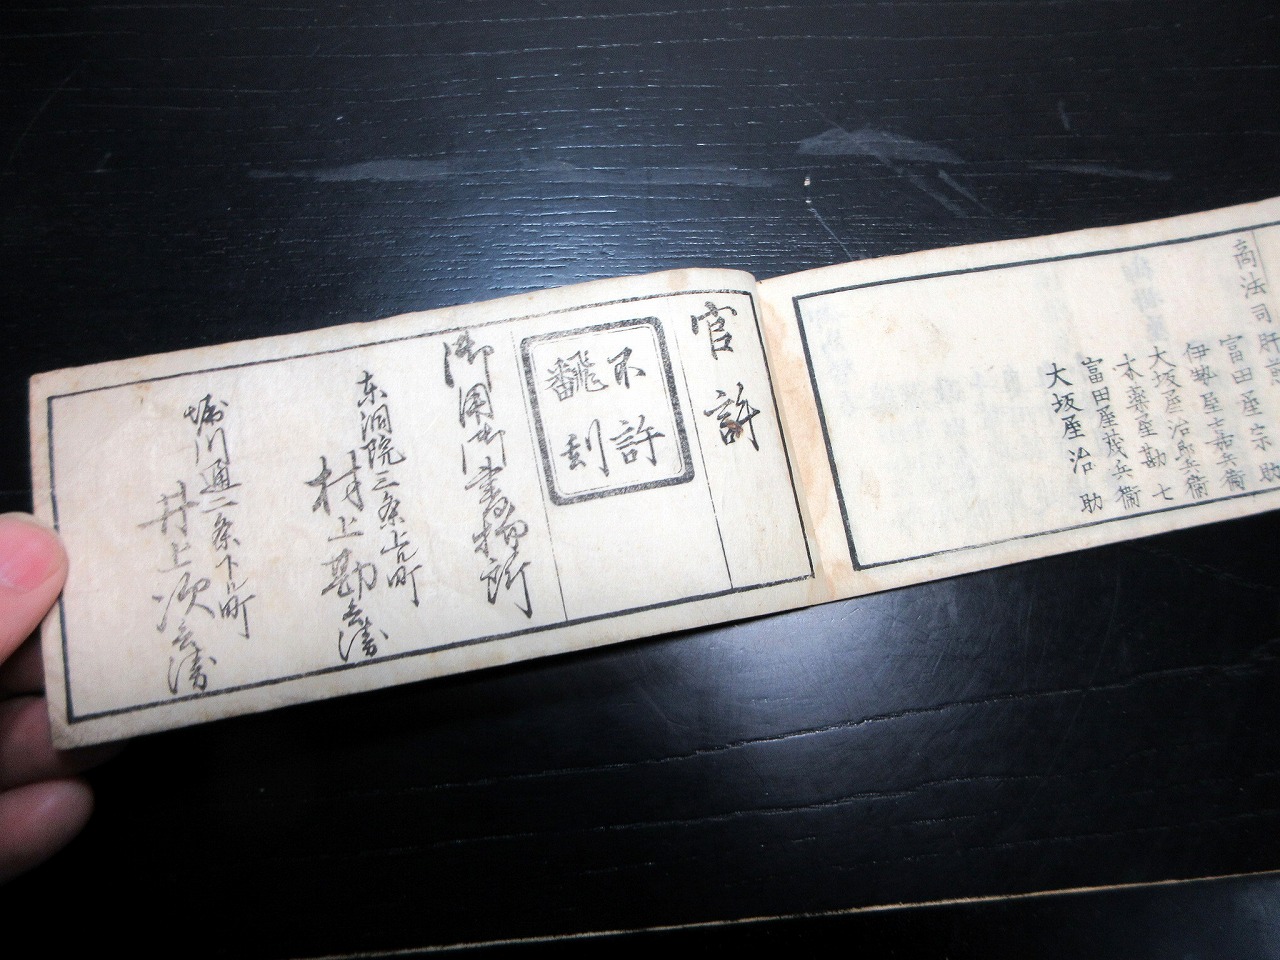 商法司 肝煎
富田屋宗助
伊勢屋嘉兵衞
大坂屋治郎兵衞
木薬屋勘七
富田屋茂兵衞
大坂屋治助
官許
不許
翻刻
御用御書物所
东洞院三条上ル町
村上勘兵衛
堀川通二条下ル町
井上次兵衛